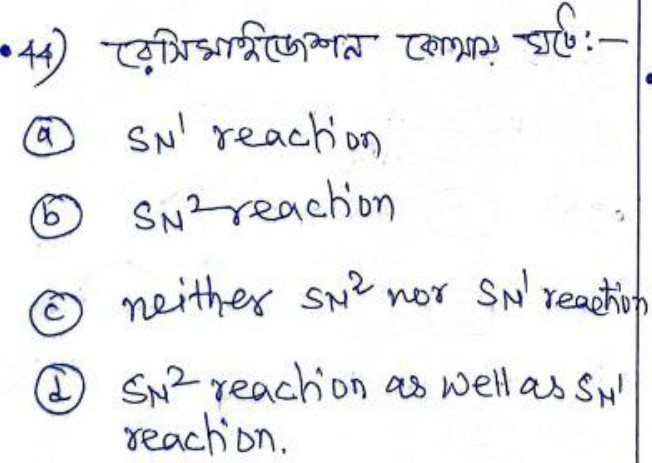 •44) রেসিমাইজেশন কোথায় ঘটে:-
(a) SN¹ reaction
(b) SN² reaction
(c) neither SN² nor SN¹ reaction
(d) SN² reaction as well as SN¹
reaction.